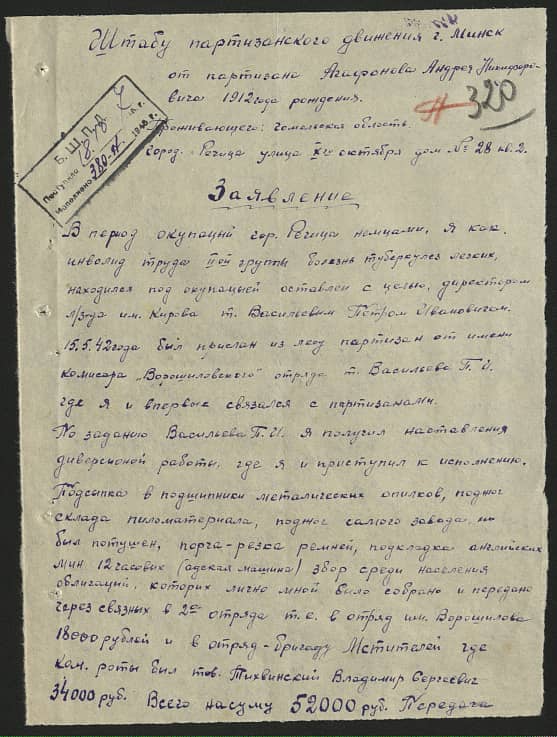 Штабу партизанского движения г. Минск
от партизана Агафонова Андрея Никифоро-
вича 1912 года рождения.
№ 320
проживающего: Гомельская область.
город. Речица улица Хго октября дом № 28 кв. 2.
Б. Ш. П. Д.
Поступило 18
Исполнено 380-А 194 г.
Заявление
В период окупаций гор. Речица немцами, я как
инвалид труда IIой группы болезнь туберкулез легких,
находился под окупацыей оставлен с целью, директором
л/з-да им. Кирова т. Васильевым Петром Ивановичем.
15.5.42 года был прислан из лесу партизан от имени
комисара "Ворошиловского" отряда т. Васильева П. И.
где я и впервые связался с партизанами.
По заданию Васильева П. И. я получил наставления
диверсионой работы, где я и приступил к исполнению.
Подсыпка в подшипники металических опилков, поджог
склада пиломатериала, поджог самого завода, но
был потушен, порча-резка ремней, подкладка английских
мин 12 часових (адская машина) збор среди населения
облигаций, которих лично мной было собрано и передано
через связных в 2 отряда т. е. в отряд им. Ворошилова
18000 рублей и в отряд-бригаду Мстителей где
ком. роты был тов. Тихвинский Владимир Сергеевич
34000 руб. Всего насуму 52000 руб. Передача